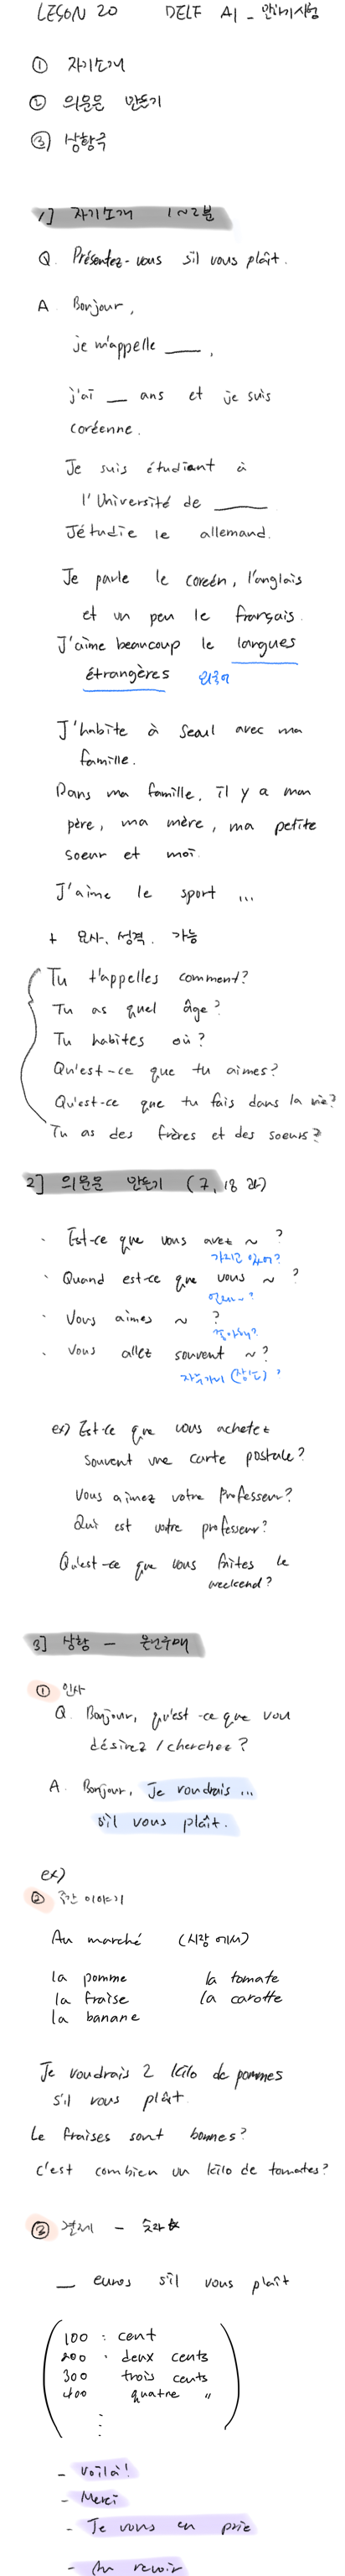 LESON 20 DELF A1 _ 말하기시험
① 자기소개
② 의문문 만들기
③ 상황극
1] 자기소개 1~2분
Q. Présentez-vous s'il vous plaît.
A. Bonjour,
je m'appelle ___,
j'ai __ ans et je suis
coréenne.
Je suis étudiant à
l'Université de ____
J'étudie le allemand.
Je parle le coreén, l'anglais
et un peu le français.
J'aime beaucoup le langues
étrangères 외국어
J'habite à Seoul avec ma
famille.
Dans ma famille, il y a mon
père, ma mère, ma petite
soeur et moi.
J'aime le sport ...
+ 묘사, 성격, 가능
Tu t'appelles comment?
Tu as quel âge?
Tu habites où?
Qu'est-ce que tu aimes?
Qu'est-ce que tu fais dans la vie?
Tu as des frères et des soeurs?
2] 의문문 만들기 (7, 18 과)
· Est-ce que vous avez ~ ?
가지고 있어?
· Quand est-ce que vous ~ ?
언제~?
· Vous aimes ~ ?
좋아해?
· Vous allez souvent ~?
자주가니 (장소) ?
ex) Est-ce que vous achetez
souvent une carte postale?
Vous aimez votre professeur?
Qui est votre professeur?
Qu'est-ce que vous faites le
weekend?
3] 상황 - 물건구매
① 인사
Q. Bonjour, qu'est-ce que vou
désirez / cherchez ?
A. Bonjour, Je voudrais ...
s'il vous plaît.
ex)
② 중간 이야기
Au marché (시장 에서)
la pomme la tomate
la fraise la carotte
la banane
Je voudrais 2 kilo de pommes
s'il vous plaît.
Le fraises sont bonnes?
c'est combien un kilo de tomates?
③ 결제 - 숫자☆
__ euros s'il vous plaît
100 : cent
200 · deux cents
300 trois cents
400 quatre "
⋮
- Voilà!
- Merci
- Je vous en prie
- Au revoir